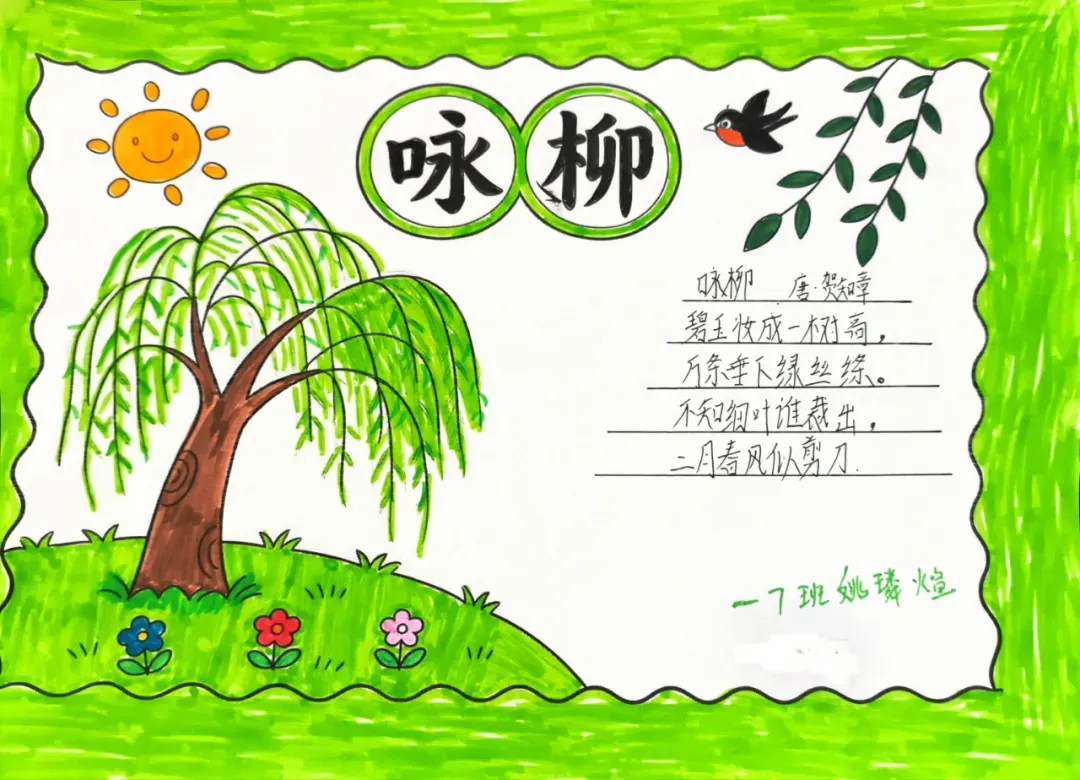 咏柳
咏柳 唐·贺知章
碧玉妆成一树高，
万条垂下绿丝绦。
不知细叶谁裁出，
二月春风似剪刀.
一7班姚璘煊